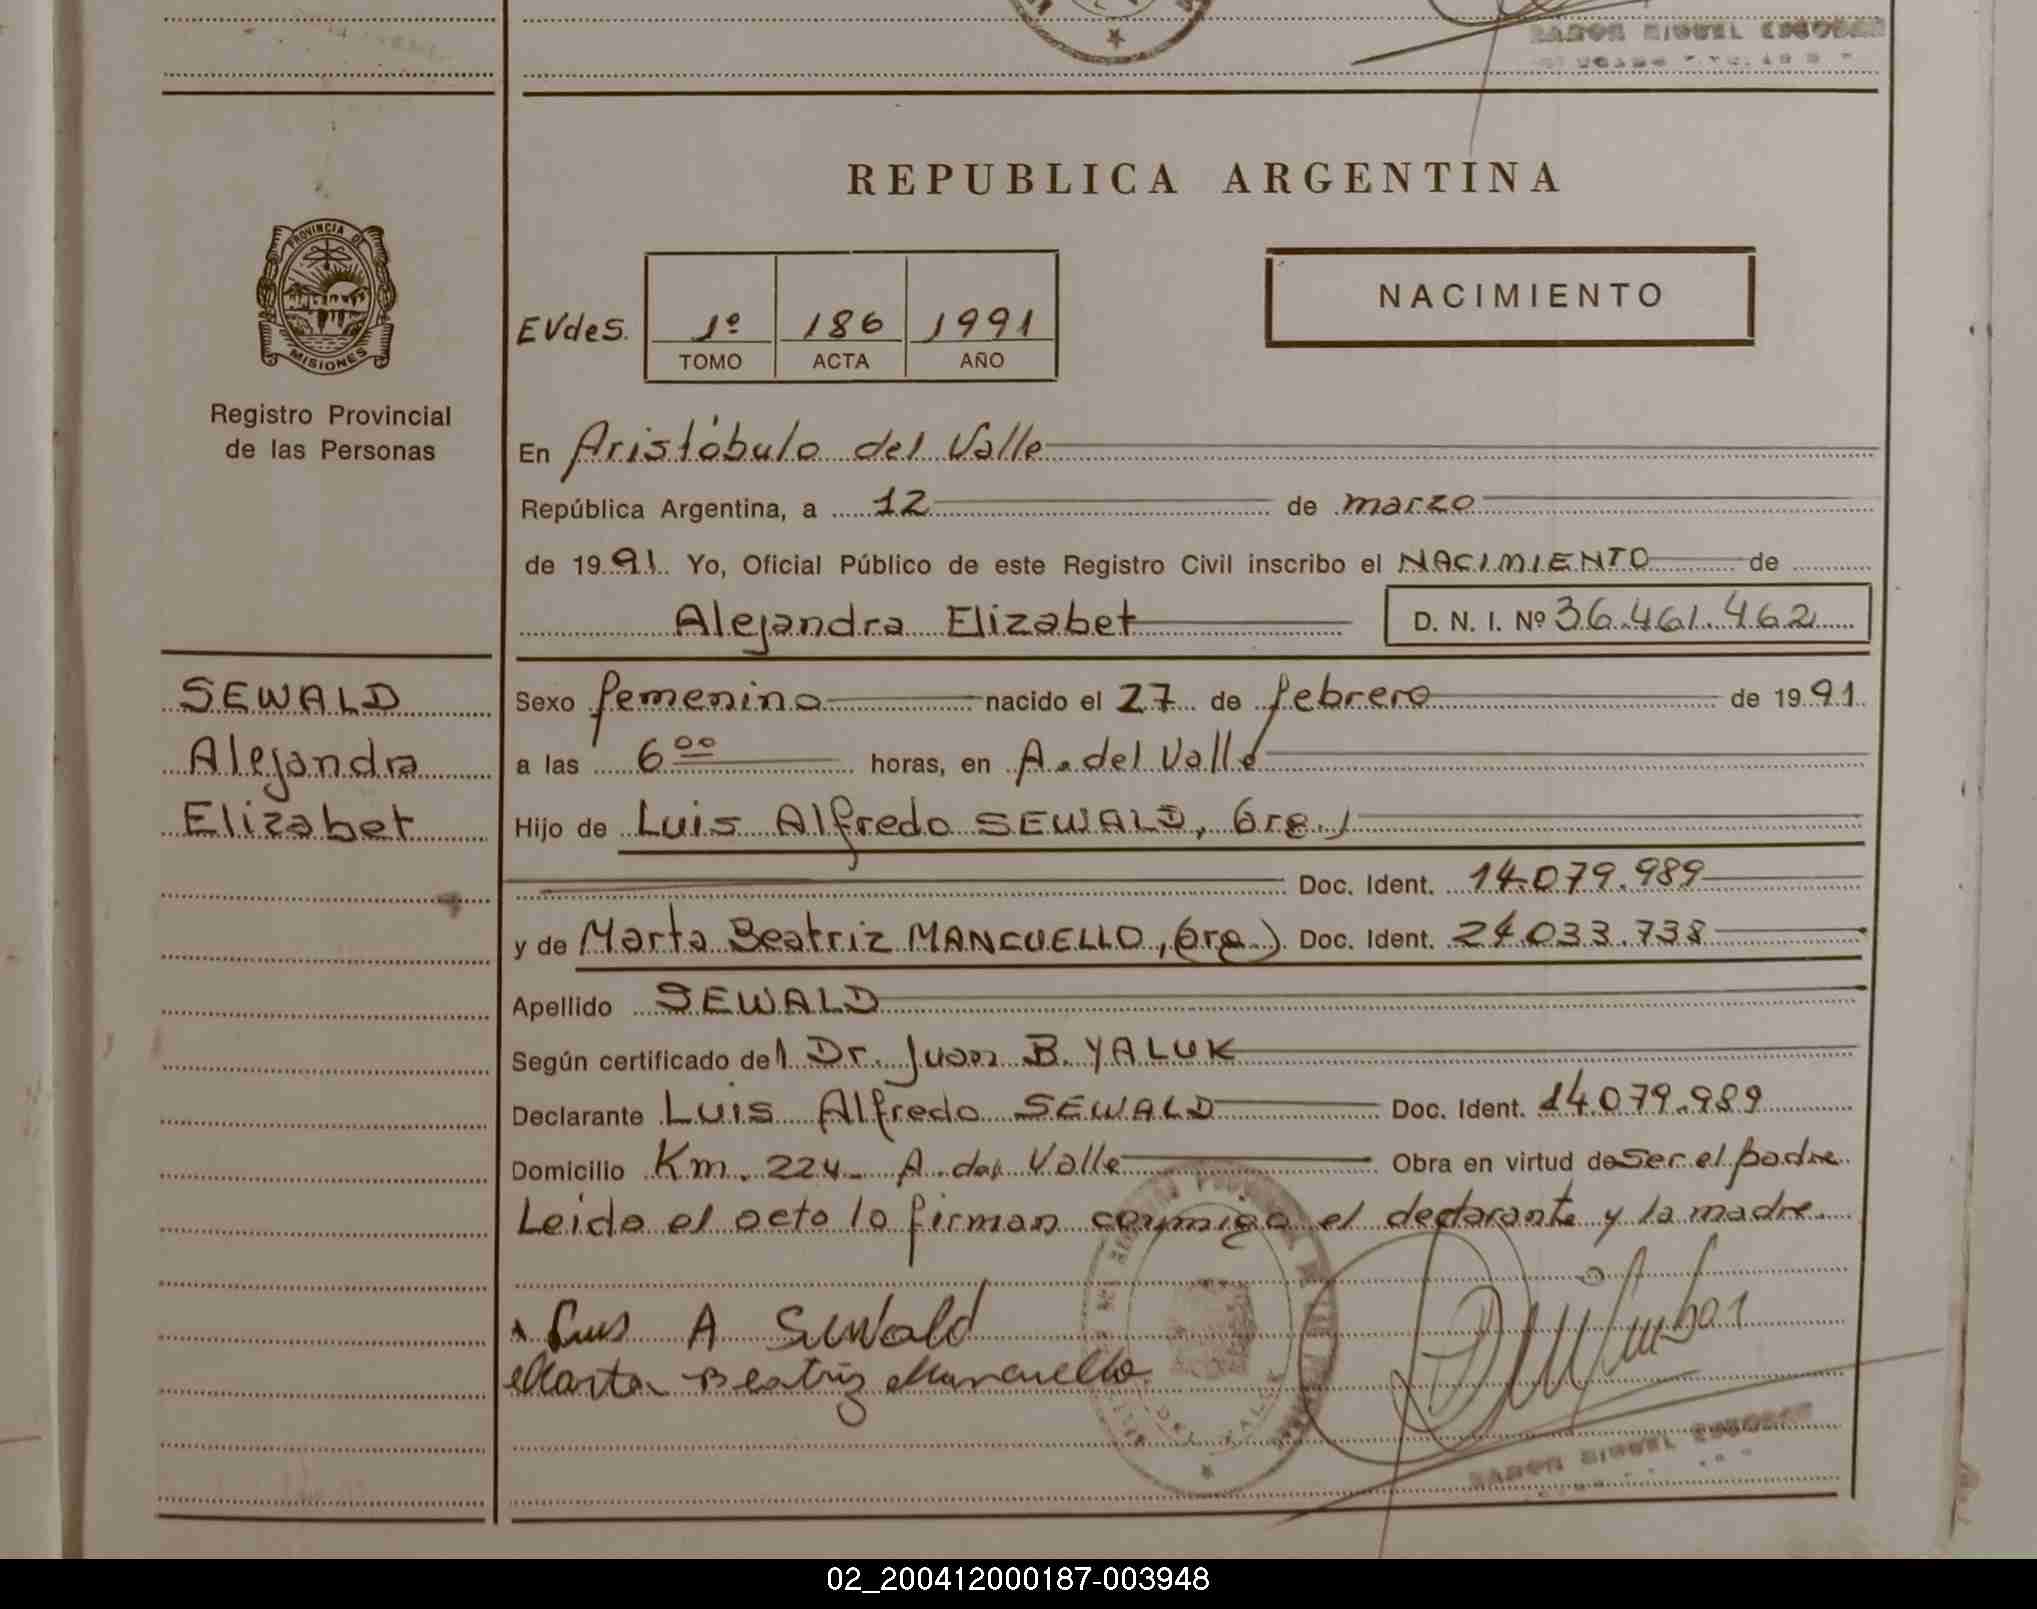 RAMON MIGUEL ESCOBAR
REPUBLICA ARGENTINA
PROVINCIA DE
MISIONES
Registro Provincial
de las Personas
NACIMIENTO
EVdes. 1º 186 1991
TOMO ACTA AÑO
En Aristóbulo del Valle
República Argentina, a 12 de marzo
de 1991 Yo, Oficial Público de este Registro Civil inscribo el NACIMIENTO de
Alejandra Elizabet D. N. I. Nº 36.461.462
SEWALD
Alejandra
Elizabet
Sexo femenino nacido el 27 de febrero de 1991
a las 6 00 horas, en A. del Valle
Hijo de Luis Alfredo SEWALD,
Doc. Ident. 14.079.989
y de Marta Beatriz MANCUELLO, Doc. Ident. 24.033.738
Apellido SEWALD
Según certificado del Dr. Juan B. YALUK
Declarante Luis Alfredo SEWALD Doc. Ident. 14.079.989
Domicilio Km. 224 A. del Valle Obra en virtud de Ser el padre
Leida el acta lo firman conmigo el declarante y la madre.
Luis A Sewald
Marta Beatriz Mancuello
DEL VALLE
RAMON MIGUEL ESCOBAR
02_200412000187-003948